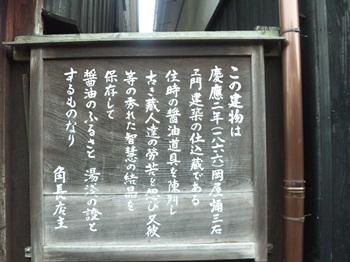 この建物は
慶應二年(一八六六)岡屋彌三右
ヱ門建築の仕込蔵である
往時の醤油道具を陳列し
古き蔵人達の勞苦を偲び又彼
等の秀れた智慧の結晶を
保存して
醤油のふるさと 湯浅の證と
するものなり
角長店主